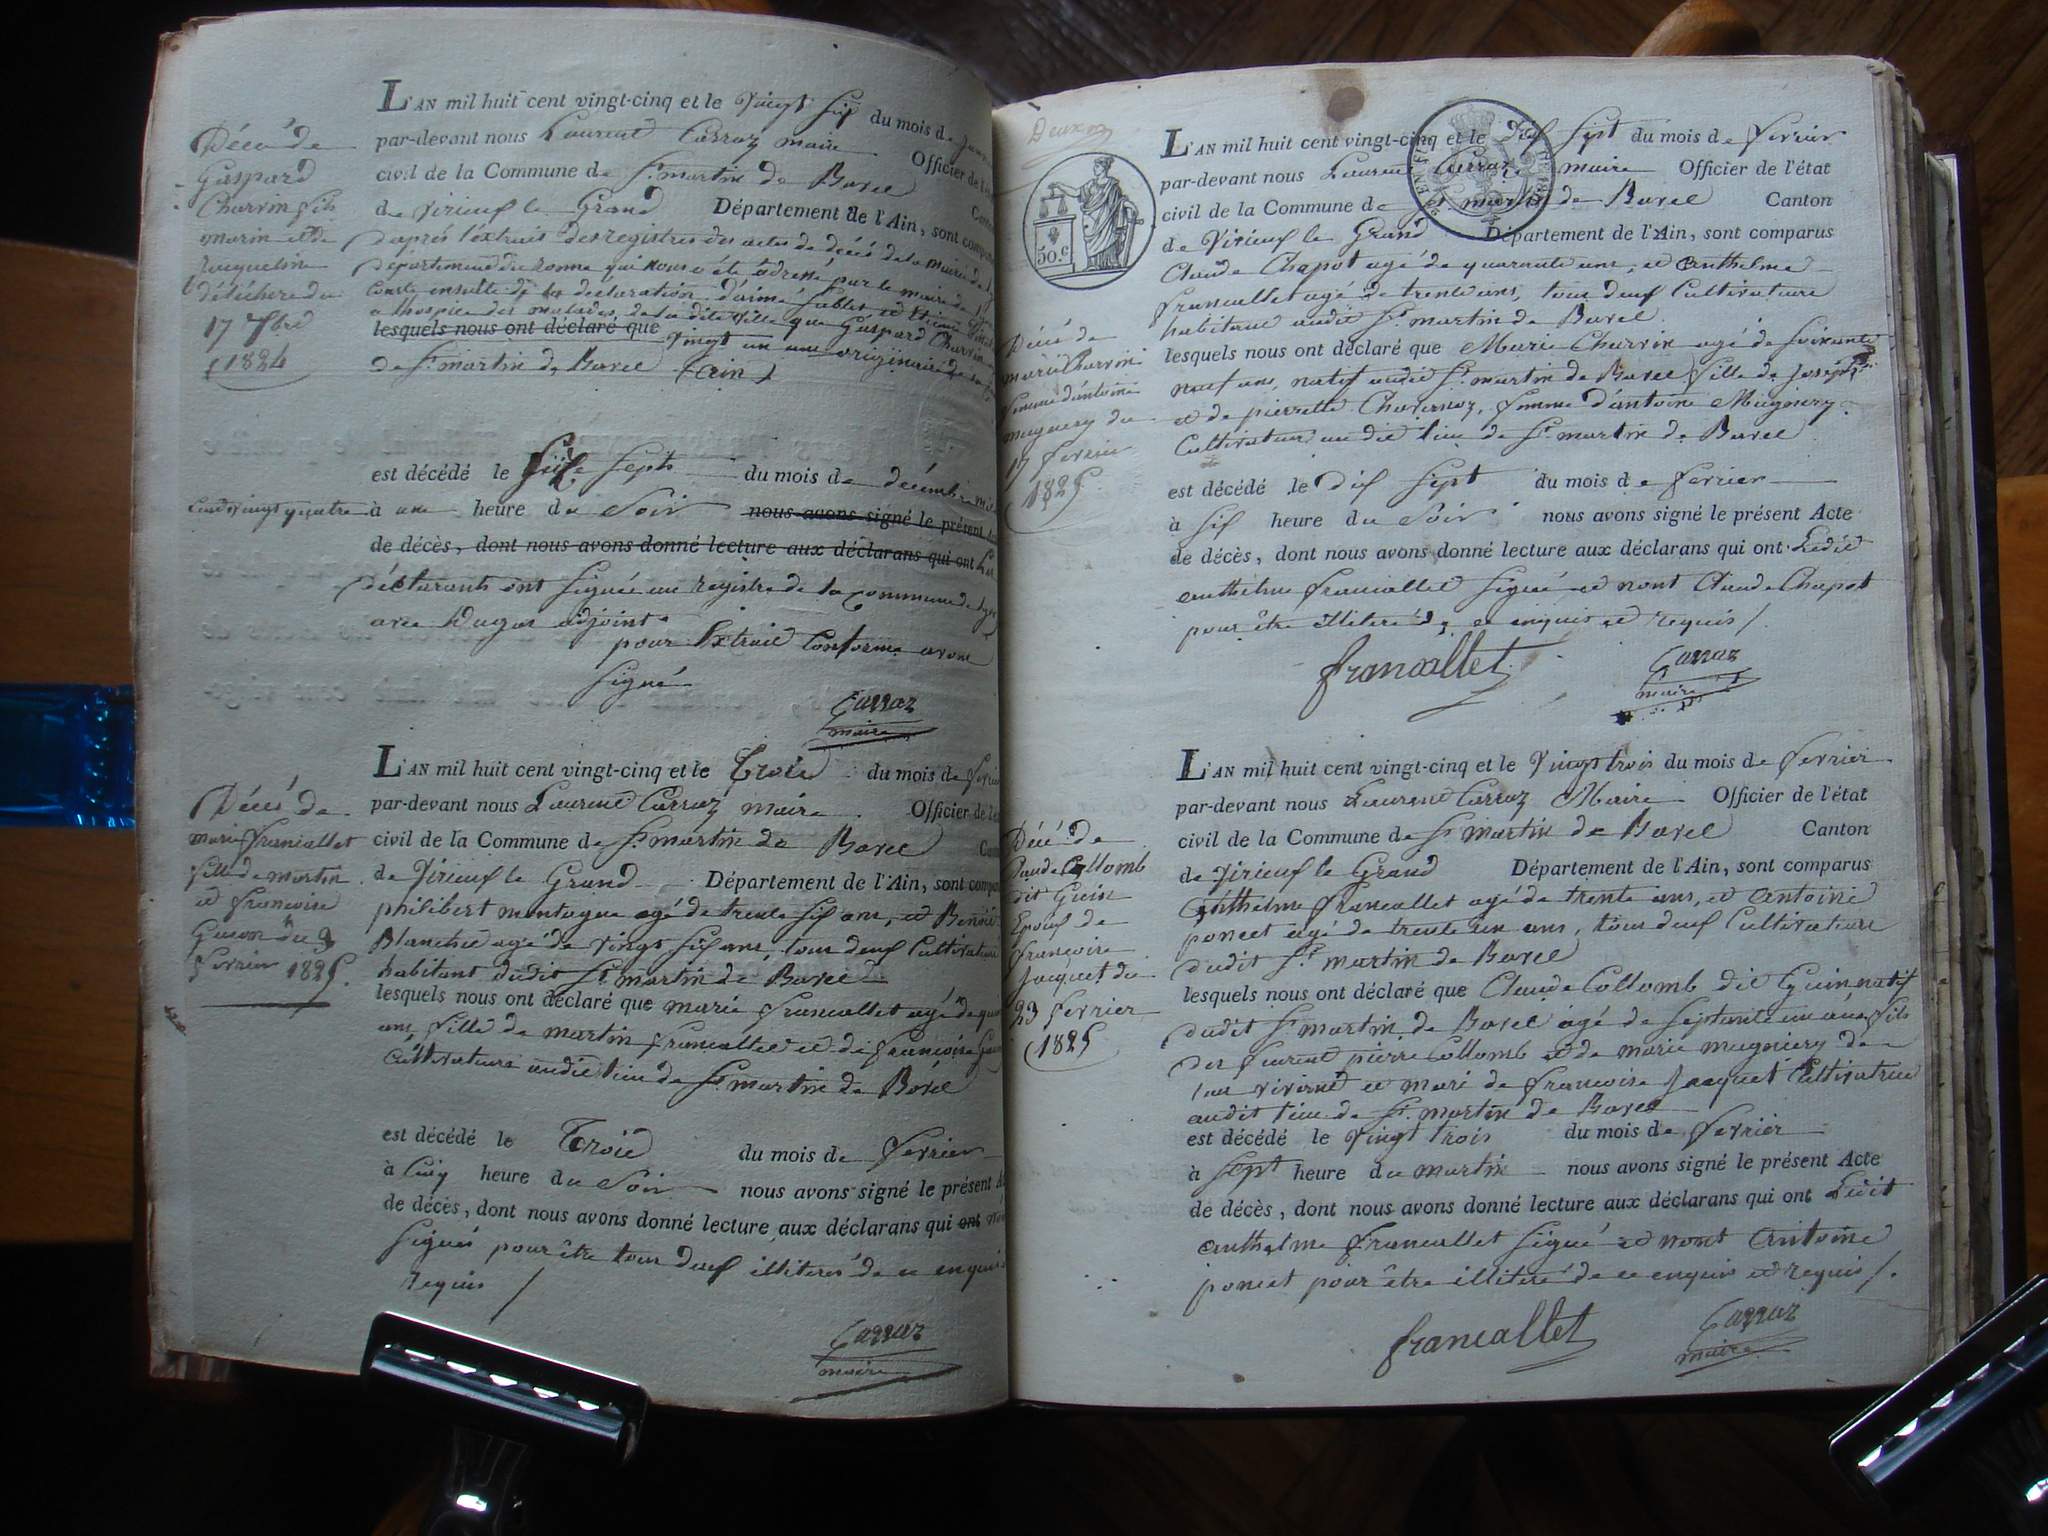 Décé de
Gaspard
Charvin fils
marin et de
Jacqueline
du
17 7bre
1824
L'AN mil huit cent vingt-cinq et le Vingt Six du mois de
par-devant nous Laurent Carraz maire Officier de
civil de la Commune de St martin de Bavel
de Virieux le Grand Département de l'Ain, sont
d'après l'extrait des registres des actes de décés de la mairie de
département du Ronne qui nous a été adressé par le maire de
ensuite de la declaration d'aimé Sablet et
a lhospice des malades, de la dite ville que Gaspard Charvin
lesquels nous ont déclaré que vingt un ans originaire de
de St martin de Bavel (ain)
est décédé le Sept du mois de décembre
cent vingt quatre à une heure du Soir nous avons signé le présent
de décès, dont nous avons donné lecture aux déclarans qui ont Les
déclarants ont Signé au registre de la Commune de
avec Dugas adjoint
pour Extrait Conforme avons
Signé
Carraz
maire
Décés de
marie francallet
fille de martin
et françoise
Guion du 3
fevrier 1825.
L'AN mil huit cent vingt-cinq et le Trois du mois de
par-devant nous Laurent Carraz maire Officier de
civil de la Commune de St martin de Bavel
de Virieux le Grand Département de l'Ain, sont
philibert montagne agé de trente Six ans, et Benoit
Blanchet agé de vingt Six ans, tous deux Cultivateurs
habitant dudit St martin de Bavel
lesquels nous ont déclaré que marie francallet agé de
ans fille de martin francallet et de françoise
Cultivateurs audit lieu de St martin de Bavel
est décédé le Trois du mois de fevrier
à Cinq heure du Soir nous avons signé le présent
de décès, dont nous avons donné lecture aux déclarans qui ont
Signés pour être tous deux illiterés de ce enquis
requis /
Carraz
maire
50.C
Décé de
marie Charvin
femme d'antoine
mugniery du
17 fevrier
1825
L'AN mil huit cent vingt-cinq et le Dix Sept du mois de fevrier
par-devant nous Laurent Carraz maire Officier de l'état
civil de la Commune de St martin de Bavel Canton
de Virieux le Grand Département de l'Ain, sont comparus
Claude Chapot agé de quarante ans, et anthelme
francallet agé de trente ans, tous deux Cultivateurs
habitant audit St martin de Bavel
lesquels nous ont déclaré que Marie Charvin agé de Soixante
neuf ans, natif audit St martin de Bavel fille de Joseph
et de pierrette Chavernoz, femme d'antoine Mugniery
Cultivateur audit lieu de St martin de Bavel
est décédé le dix Sept du mois de fevrier
à Six heure du Soir nous avons signé le présent Acte
de décès, dont nous avons donné lecture aux déclarans qui ont Ledit
anthelme francallet Signé et nont Claude Chapot
pour être illiteré de ce enquis et requis /.
francallet
Carraz
maire
Décé de
Claude Collomb
dit Guin
Epoux de
françoise
Jacquet du
23 fevrier
1825
L'AN mil huit cent vingt-cinq et le Vingt trois du mois de fevrier
par-devant nous Laurent Carraz Maire Officier de l'état
civil de la Commune de St martin de Bavel Canton
de Virieux le Grand Département de l'Ain, sont comparus
Anthelme francallet agé de trente ans, et Antoine
poncet agé de trente un ans, tous deux Cultivateurs
dudit St martin de Bavel
lesquels nous ont déclaré que Claude Collomb dit Guin, natif
dudit St martin de Bavel agé de Septante un ans, fils
des furent pierre Collomb et de marie mugniery de
leur vivant et mari de françoise Jacquet Cultivatrice
audit lieu de St martin de Bavel
est décédé le vingt trois du mois de fevrier
à Sept heure du matin nous avons signé le présent Acte
de décès, dont nous avons donné lecture aux déclarans qui ont Ledit
anthelme francallet Signé et nont Antoine
poncet pour être illiteré de ce enquis et requis /.
francallet
Carraz
maire